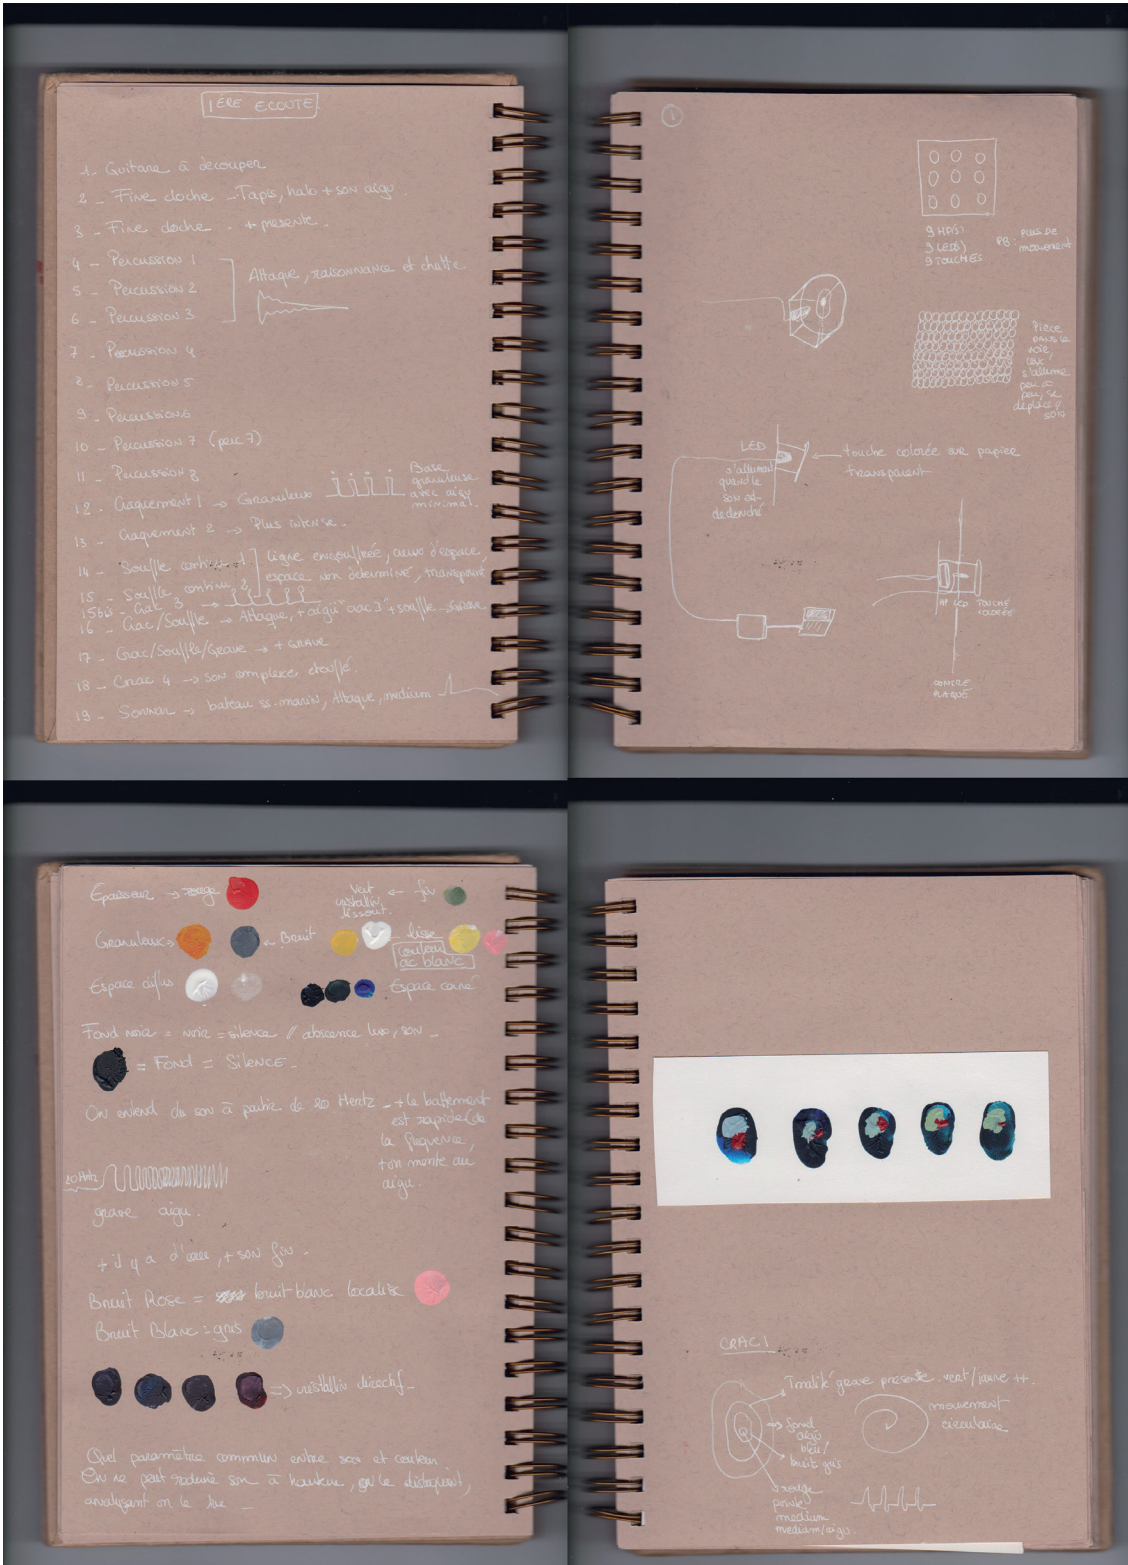 1ÈRE ECOUTE
1- Guitare à découper
2 - Fine cloche - Tapis, halo + son aigu.
3 - Fine cloche - + présente -
4 - Percussion 1
5 - Percussion 2
6 - Percussion 3
Attaque, raisonnance et chutte
7 - Percussion 4
8 - Percussion 5
9 - Percussion 6
10 - Percussion 7 (perc 7)
11 - Percussion 8
12 - Craquement 1 → Granuleux
Base
granuleuse
avec aigu
minimal.
13 - Craquement 2 → Plus intense -
14 - Souffle combiné 1
15 - Souffle combiné 2
Ligne engouffrée, creux d'espace,
espace non déterminé, transposé
15bis - Crac 3 →
16 - Crac/Souffle → Attaque, + aigu "crac 3" + souffle
17 - Crac/Souffle/Grave → + GRAVE
18 - Crac 4 → son complexe, étouffé.
19 - Sonnar → bateau ss-marin, Attaque, medium
1
9 HP(S)
9 LED(S)
9 TOUCHES
PB: PLUS DE
mouvement
Pièce
dans le
noir
s'allume
peu à
peu, se
déplace
LED
s'allument
quand le
son est
declenché
← touche colorée sur papier
transparent
HP LED TOUCHE
COLORÉE
CONTRE
PLAQUÉ
Epaisseur → rouge
Vert
cristallin
← fin
Granuleux →
← Bruit
lisse
couleur
ac blanc
Espace diffus
Espace corné
Fond noir = noir = silence // abscence lum, son -
= Fond = Silence -
On entend du son à partir de 20 Hertz - + le battement
est rapide (de
la fréquence,
+ on monte au
aigu.
20 Hertz
grave aigu.
+ il y a d'aigu, + son fin -
Bruit Rose = bruit blanc localisé
Bruit Blanc = gris
=> cristallin directif -
Quel paramètre commun entre son et couleur
On ne peut réduire son à hauteur, on le
analysant on le tue -
CRAC 1
Tonalité grave présente. vert/jaune ++.
→ fond
aigu
bleu/
bruit gris
mouvement
circulaire
→ rouge
pointe
medium
medium/aigu.